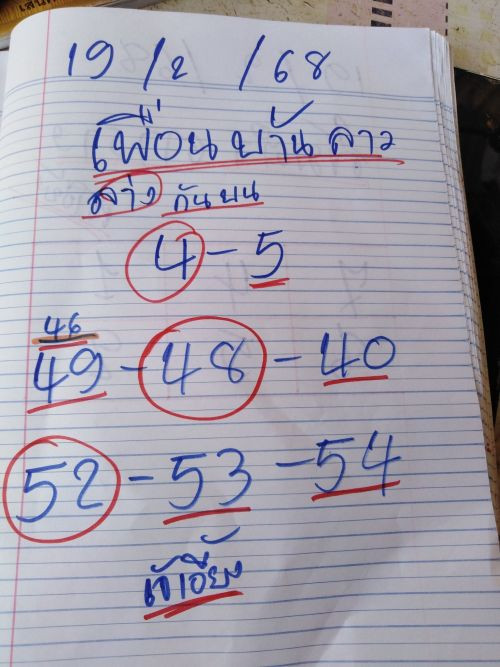 19 /2 /68
เพื่อน บ้าน ลาว
ล่าง กันบน
4 - 5
46
49 - 48 - 40
52 - 53 - 54